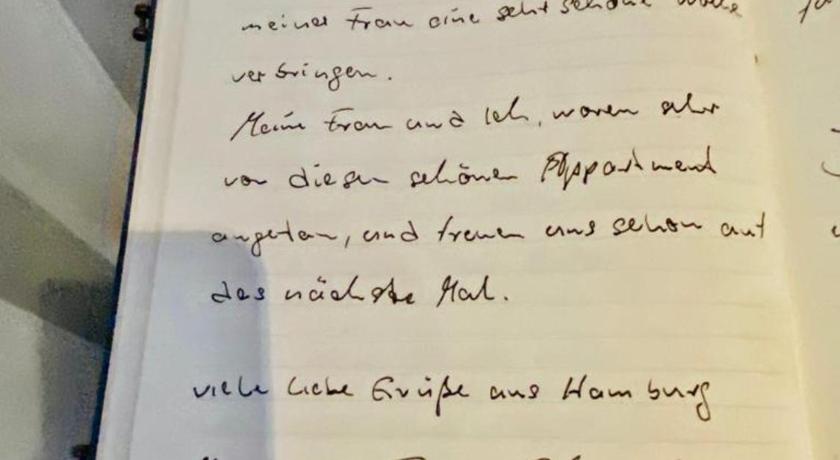 meiner Frau eine sehr schöne Woche
verbringen.
Meine Frau und ich, waren sehr
von diesem schönen Appartment
angetan, und freuen uns schon auf
das nächste Mal.
viele liebe Grüße aus Hamburg